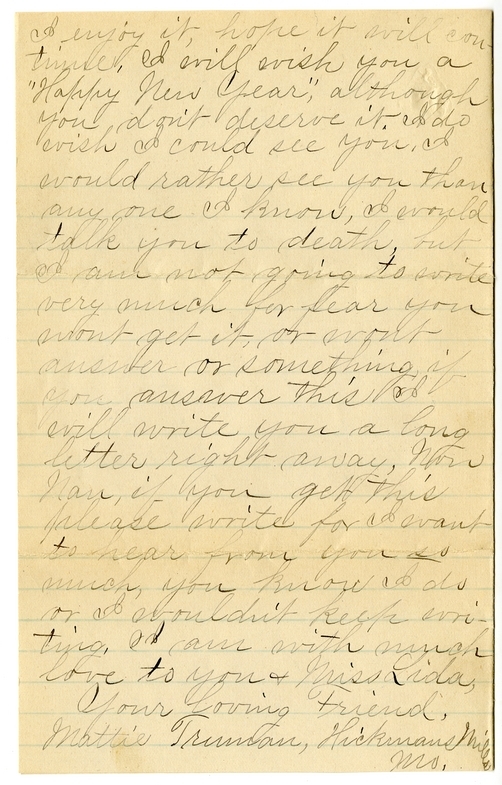 I enjoy it, hope it will con-
tinue, I will wish you a
"Happy New Year", although
you don't deserve it. I do
wish I could see you, I
would rather see you than
any one I know, I would
talk you to death, but
I am not going to write
very much for fear you
wont get it, or wont
answer or something, if
you answer this I
will write you a long
letter right away, Now
Nan, if you get this
please write for I want
to hear from you so
much, you know I do
or I wouldn't keep wri-
ting. I am with much
love to you & Miss Lida,
Your Loving Friend,
Mattie Truman, Hickmans Mills
Mo.